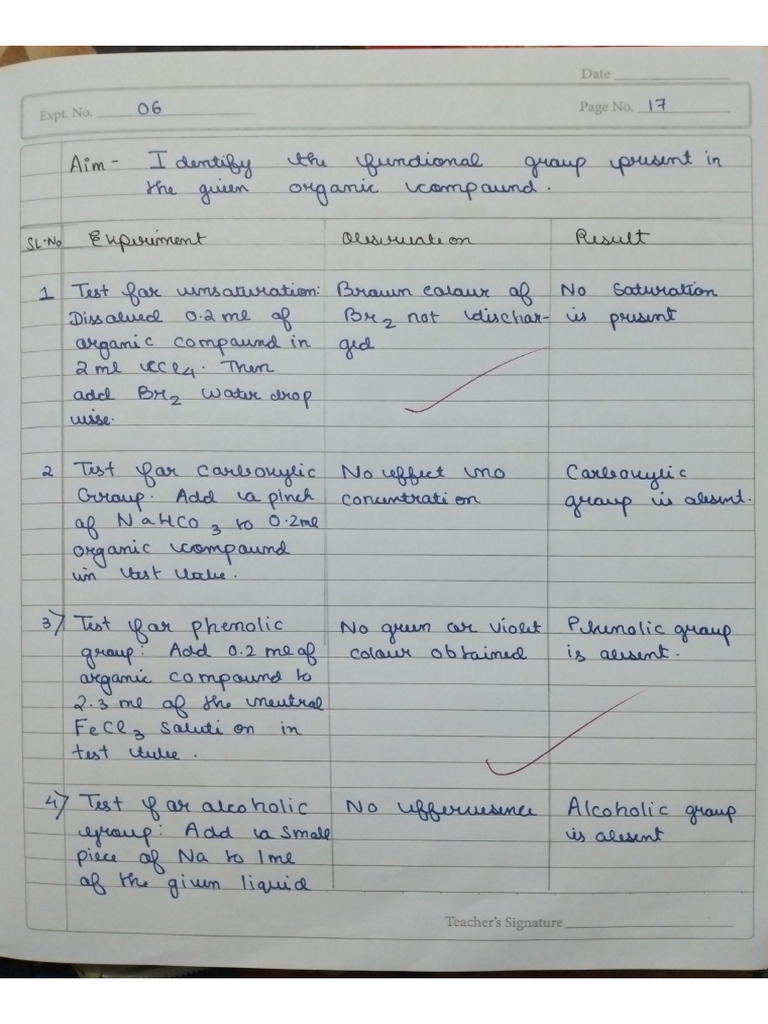 Date
Expt. No. 06
Page No. 17
Aim - Identify the fundional group present in
the given organic compound.
SL.No Experiment Observation Result
1 Test for unsaturation: Brown colour of No Saturation
Dissolved 0.2 ml of Br2 not dischar- is present
organic compound in ged
2 ml CCl4. Then
add Br2 water drop
wise.
2 Test for Carboxylic No effect no Carboxylic
Group. Add a pinch concentration group is absent.
of NaHCO3 to 0.2ml
organic compound
in test tube.
3) Test for phenolic No green or violet Phenolic group
group: Add 0.2 ml of colour obtained is absent.
organic compound to
2.3 ml of the neutral
FeCl3 Solution in
test tube.
4) Test for alcoholic No effervesence Alcoholic group
group: Add a small is absent
piece of Na to 1ml
of the given liquid
Teacher's Signature